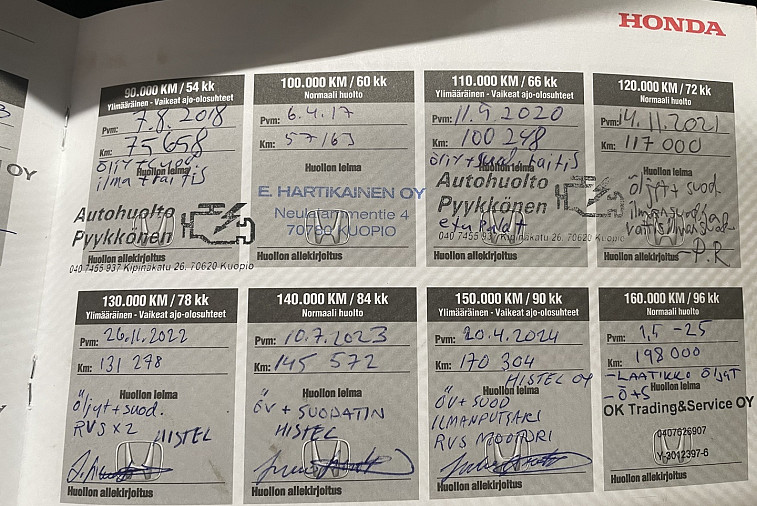 HONDA
90.000 KM / 54 kk
Ylimääräinen - Vaikeat ajo-olosuhteet
Pvm: 7.8.2018
Km: 75658
Huollon leima
öljyt + suod
ilma + raitis
Autohuolto
Pyykkönen
040 7455 937 Kipinäkatu 26, 70620 Kuopio
Huollon allekirjoitus
100.000 KM / 60 kk
Normaali huolto
Pvm: 6.4.17
Km: 57163
Huollon leima
E. HARTIKAINEN OY
Neulaniementie 4
70780 KUOPIO
Huollon allekirjoitus
110.000 KM / 66 kk
Ylimääräinen - Vaikeat ajo-olosuhteet
Pvm: 11.9.2020
Km: 100 248
Huollon leima
öljyt + suod, raitis
Autohuolto
Pyykkönen
etu palat
040 7455 937 Kipinäkatu 26, 70620 Kuopio
Huollon allekirjoitus
120.000 KM / 72 kk
Normaali huolto
Pvm: 14.11.2021
Km: 117 000
Huollon leima
öljyt + suod.
P.R
Huollon allekirjoitus
130.000 KM / 78 kk
Ylimääräinen - Vaikeat ajo-olosuhteet
Pvm: 26.11.2022
Km: 131 278
Huollon leima
öljyt + suod.
RVS X2 HISTEL
Huollon allekirjoitus
140.000 KM / 84 kk
Normaali huolto
Pvm: 10.7.2023
Km: 145 572
Huollon leima
ÖV + SUODATIN
HISTEL
Huollon allekirjoitus
150.000 KM / 90 kk
Ylimääräinen - Vaikeat ajo-olosuhteet
Pvm: 20.4.2024
Km: 170 304
HISTEL OY
Huollon leima
ÖV + SUOD
ILMANPUTSARI
RVS MOOTTORI
Huollon allekirjoitus
160.000 KM / 96 kk
Normaali huolto
Pvm: 1,5 -25
Km: 198000
- LAATIKKO ÖLJYT
Huollon leima
- Ö+S
OK Trading&Service OY
0407626907
Y-2012397-6
Huollon allekirjoitus